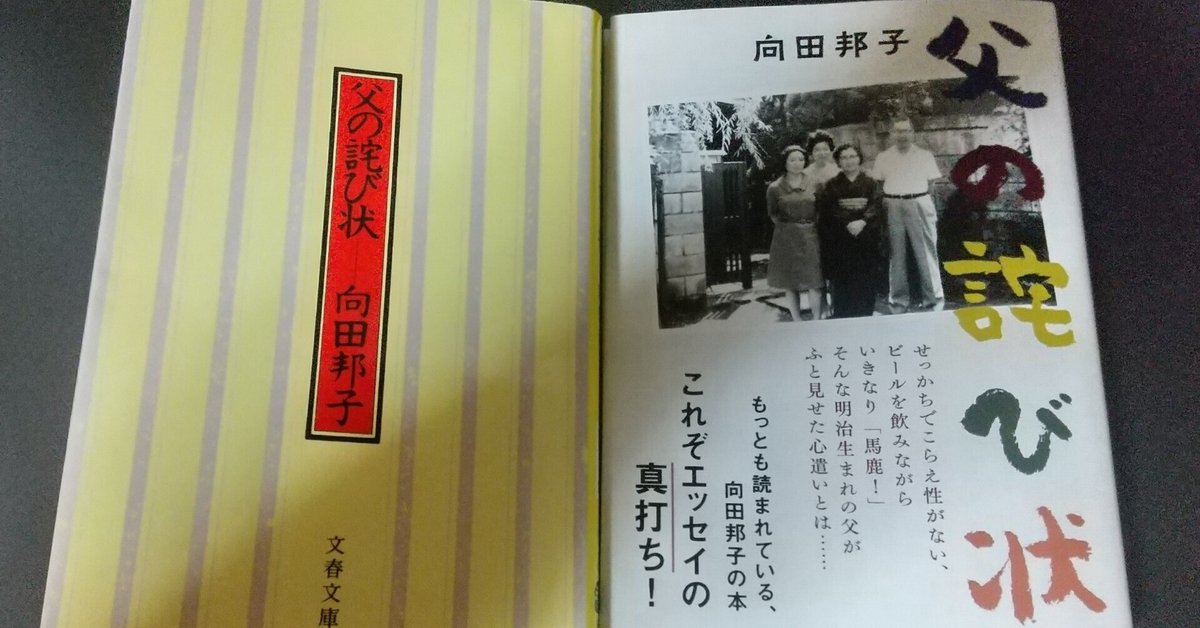 父の詫び状 ── 向田邦子
文春文庫
向田邦子
父の詫び状
せっかちでこらえ性がない、
ビールを飲みながら
いきなり「馬鹿!」
そんな明治生まれの父が
ふと見せた心遣いとは……
もっとも読まれている、
向田邦子の本
これぞエッセイの
真打ち!